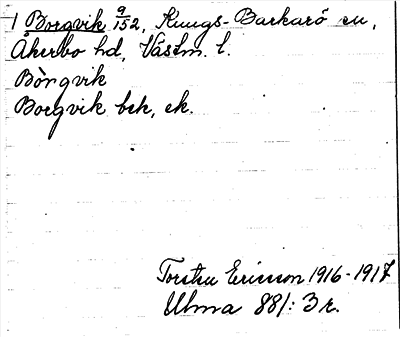 1 Borgvik 9/152, Kungs-Barkarö sn,
Åkerbo hd, Västm. l.
Bòrgvik
Borgvik bsk, ek.
Torsten Ericsson 1916-1917
Ulma 881: 3 r.